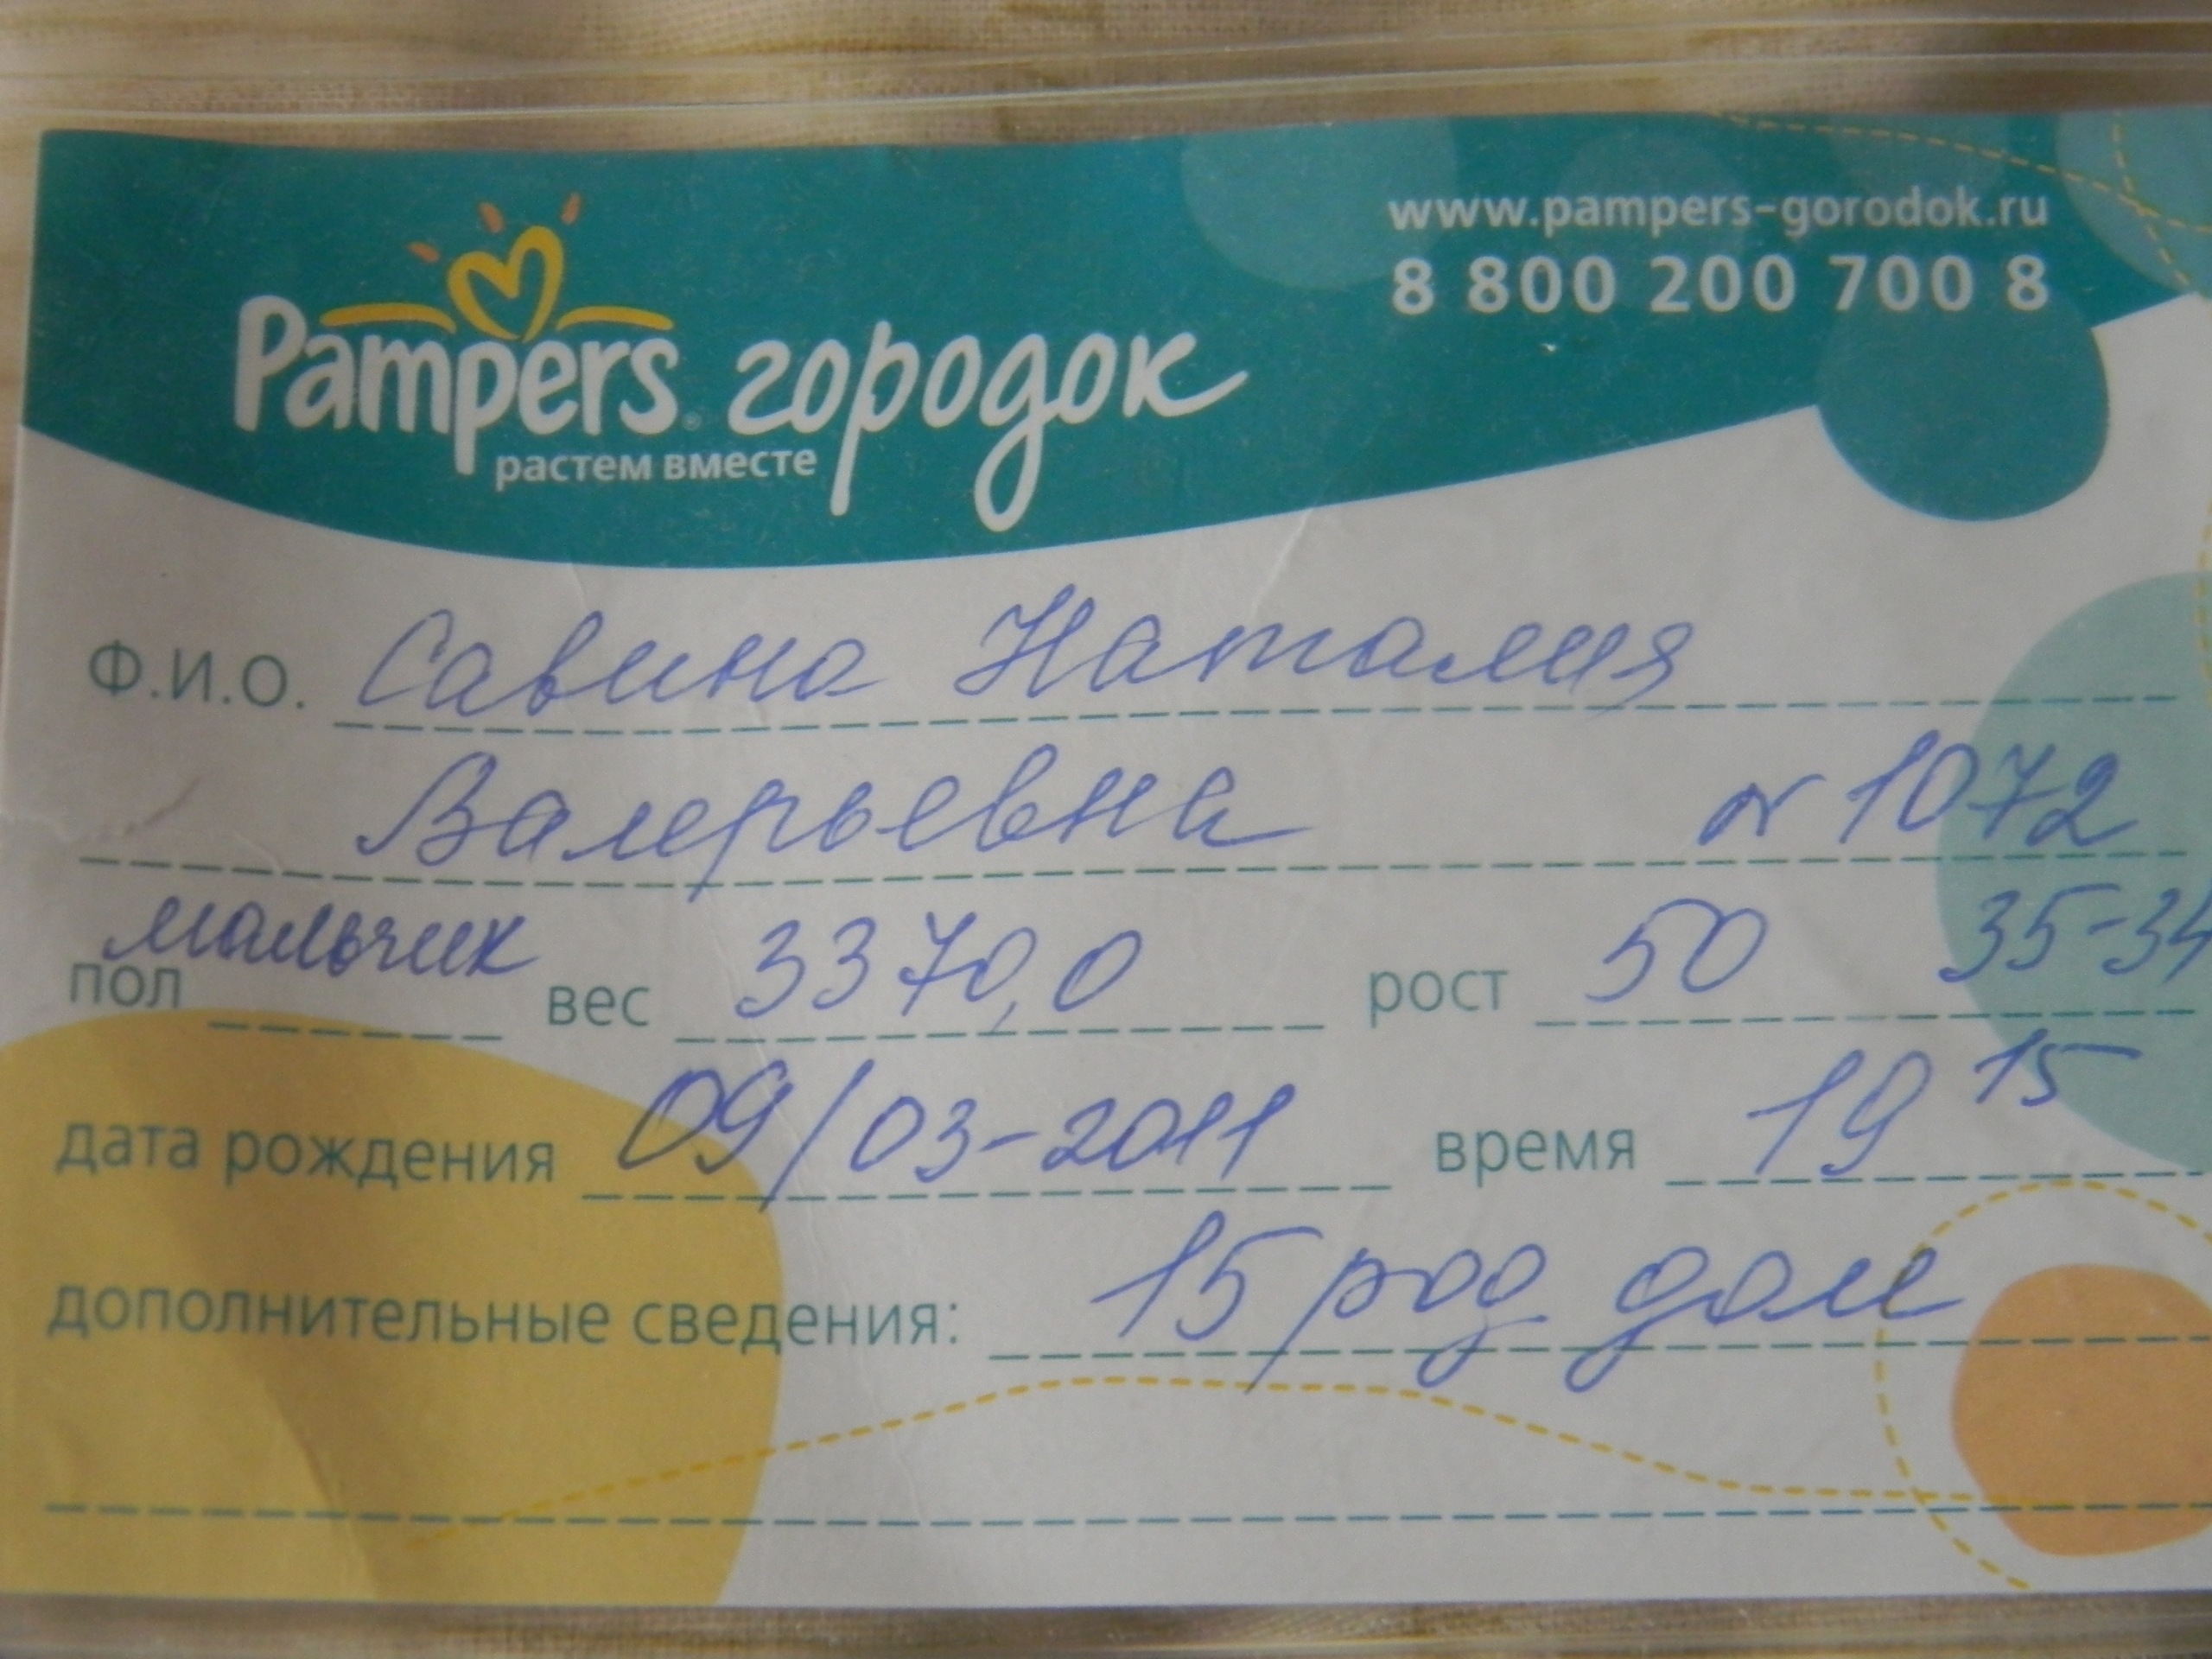 www.pampers-gorodok.ru
8 800 200 700 8
Pampers городок
растем вместе
Ф.И.О. Савина Наталия
Валерьевна № 1072
пол мальчик вес 3370,0 рост 50 35-34
дата рождения 09/03-2011 время 19 15
дополнительные сведения: 15 род дом